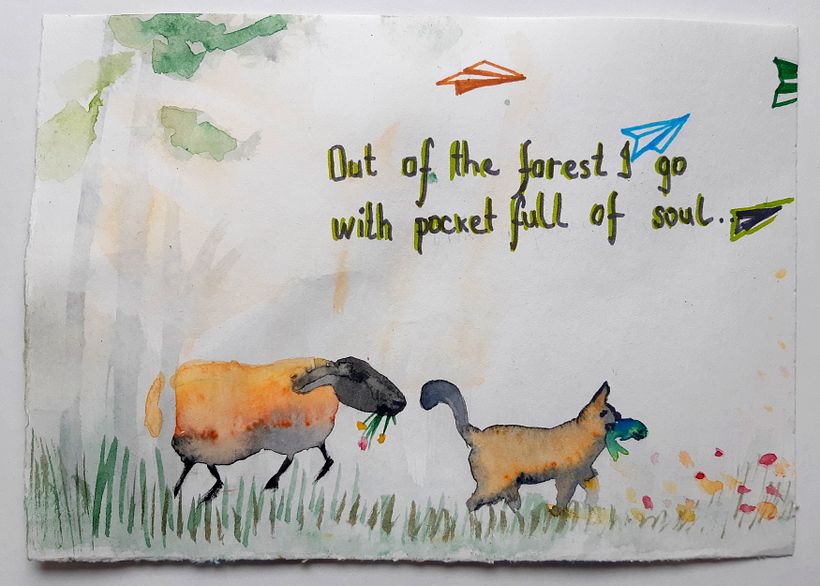 Out of the forest I go
with pocket full of soul..